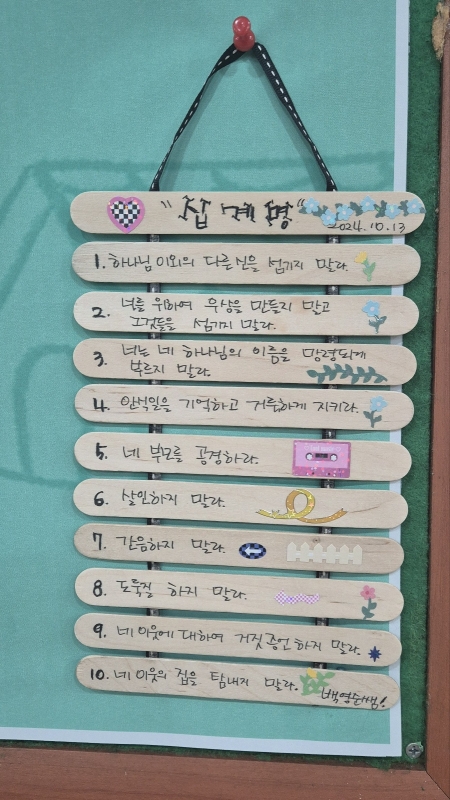 "십계명"
2024.10.13
1. 하나님 이외의 다른신을 섬기지 말라.
2. 너를 위하여 우상을 만들지 말고
그것들을 섬기지 말라.
3. 너는 네 하나님의 이름을 망령되게
부르지 말라.
4. 안식일을 기억하고 거룩하게 지키라.
5. 네 부모를 공경하라.
6. 살인하지 말라.
7. 간음하지 말라.
8. 도둑질 하지 말라.
9. 네 이웃에 대하여 거짓증언 하지 말라.
10. 네 이웃의 집을 탐내지 말라.
백영순쌤!